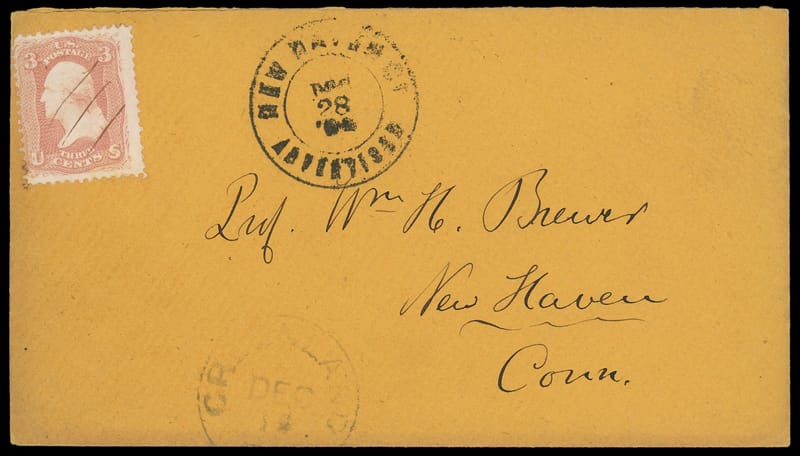 3 U.S. 3
POSTAGE
U THREE S
CENTS
NEW HAVEN CT
DEC
28
'64
ADVERTISED
Prof. Wm H. Brewer
New Haven
Conn.
DEC